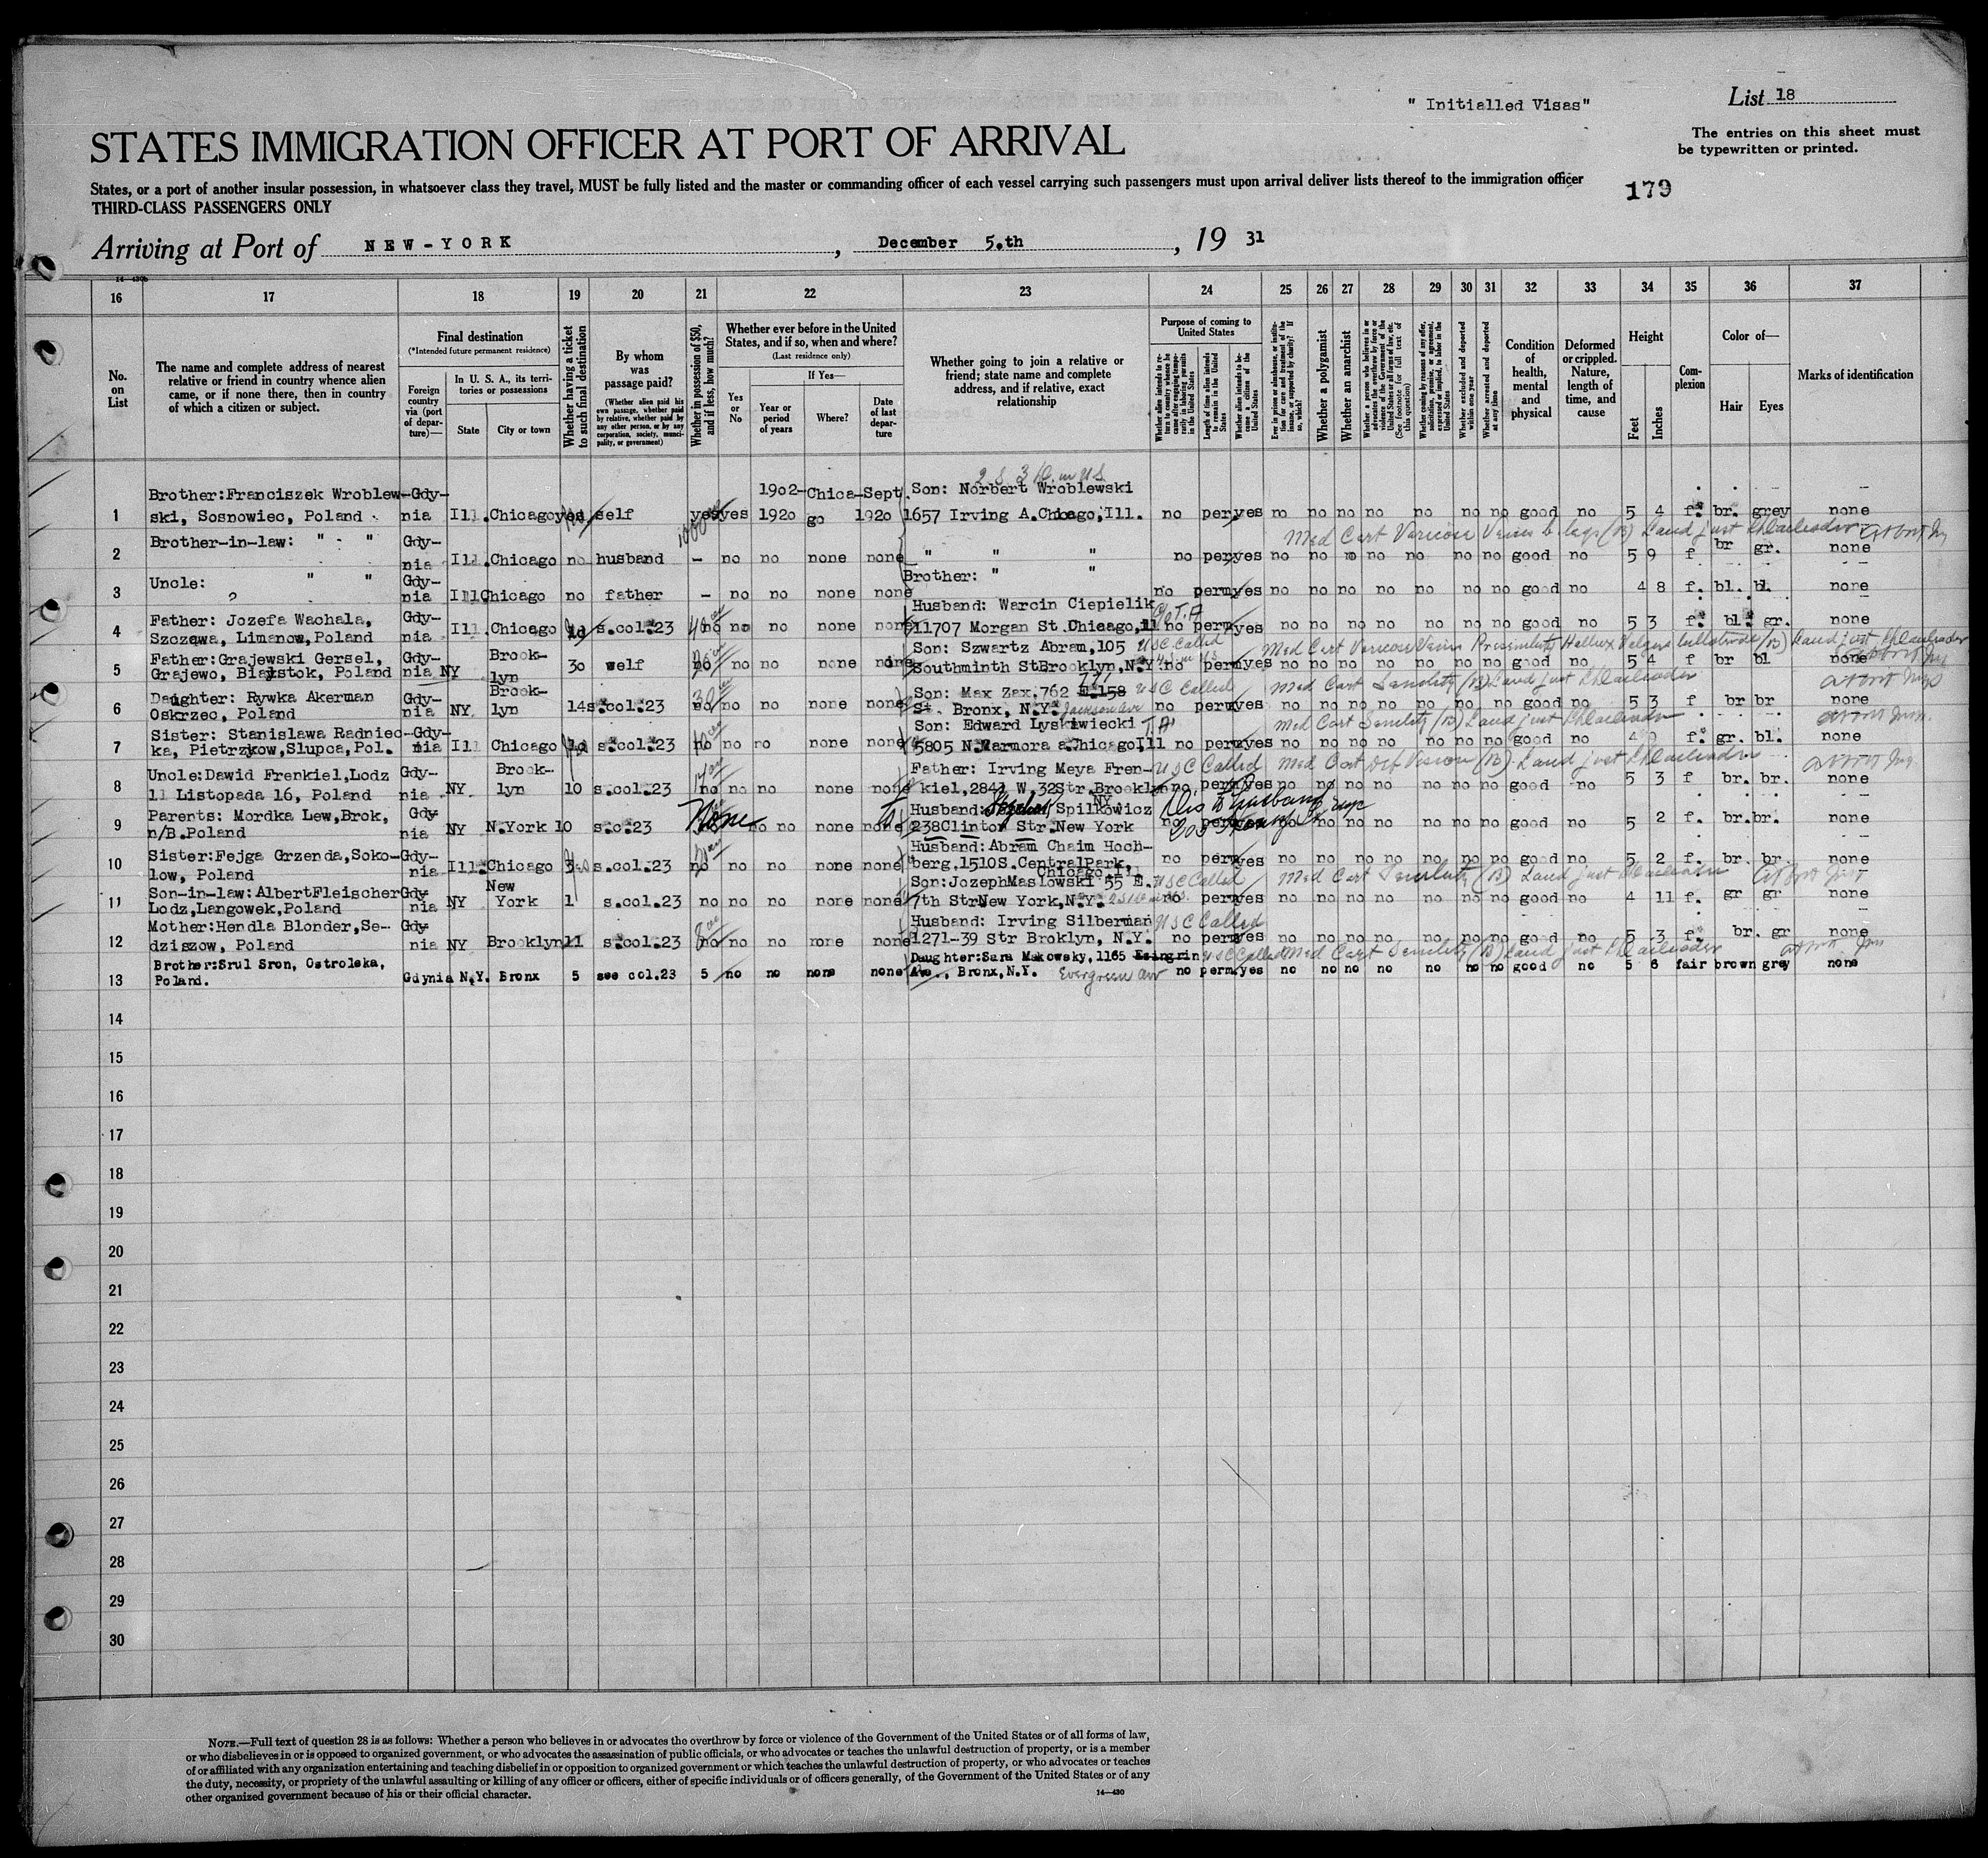 " Initialled Visas"
List 18
STATES IMMIGRATION OFFICER AT PORT OF ARRIVAL
The entries on this sheet must
be typewritten or printed.
States, or a port of another insular possession, in whatsoever class they travel, MUST be fully listed and the master or commanding officer of each vessel carrying such passengers must upon arrival deliver lists thereof to the immigration officer
THIRD-CLASS PASSENGERS ONLY
179
Arriving at Port of NEW-YORK, December 5.th, 19 31
14-430b
16 17 18 19 20 21 22 23 24 25 26 27 28 29 30 31 32 33 34 35 36 37
No. on List
The name and complete address of nearest
relative or friend in country whence alien
came, or if none there, then in country
of which a citizen or subject.
Final destination
(*Intended future permanent residence)
Foreign country via (port of departure)—
In U. S. A., its territories or possessions
State
City or town
Whether having a ticket to such final destination
By whom was passage paid?
(Whether alien paid his own passage, whether paid by relative, whether paid by any other person, or by any corporation, society, municipality, or government)
Whether in possession of $50, and if less, how much?
Whether ever before in the United
States, and if so, when and where?
(Last residence only)
Yes or No
If Yes—
Year or period of years
Where?
Date of last departure
Whether going to join a relative or
friend; state name and complete
address, and if relative, exact
relationship
Purpose of coming to United States
Whether alien intends to return to country whence he came after engaging temporarily in laboring pursuits in the United States
Length of time alien intends to remain in the United States
Whether alien intends to become a citizen of the United States
Ever in prison or almshouse, or institution for care and treatment of the insane, or supported by charity? If so, which?
Whether a polygamist
Whether an anarchist
Whether a person who believes in or advocates the overthrow by force or violence of the Government of the United States or all forms of law, etc. (See footnote for full text of this question)
Whether coming by reason of any offer, solicitation, promise, or agreement, expressed or implied, to labor in the United States
Whether excluded and deported within one year
Whether arrested and deported at any time
Condition of health, mental and physical
Deformed or crippled. Nature, length of time, and cause
Height
Feet
Inches
Complexion
Color of—
Hair
Eyes
Marks of identification
2 S 3 D. in US
1 Brother:Franciszek Wroblew- Gdy- 1902- Chica- Sept. Son: Norbert Wroblewski
ski, Sosnowiec, Poland nia Ill. Chicago yes self yes yes 1920 go 1920 1657 Irving A.Chicago,Ill. no perm yes no no no no no no no good no 5 4 f. br. grey none
Med Cert Varicose Veins b legs (B) Land just
2 Brother-in-law: " - " Gdy-
nia Ill. Chicago no husband - no no none none " " " no perm yes no no no no no no no good no 5 9 f br gr. none
3 Uncle: " " Gdy- Brother: " "
? nia Ill Chicago no father - no no none none no perm yes no no no no no no no good no 4 8 f. bl. bl. none
4 Father: Jozefa Wachala, Gdy- Husband: Warcin Ciepielik
Szczawa, Limanow,Poland nia Ill. Chicago s.col.23 no no no none none 11707 Morgan St.Chicago,Ill no perm yes no no no no no no no good no 5 3 f. bl. gr. none
5 Father:Grajewski Gersel, Gdy- Brook- Son: Szwartz Abram,105 USC Called
Grajewo, Bialystok, Poland nia NY lyn 30 welf no no no none none Southminth StBrooklyn,N.Y. no perm yes no no no no no no no good no 5 4 f br bl none
Med Cert Varicose Veins Presenility Hallux Valgus bilateral (B) Land just
6 Daughter: Rywka Akerman Gdy- Brook- Son: Max Zax,762 E.158 USC Called
Oskrzec, Poland nia NY. lyn 14 s.col.23 no no no none none St. Bronx, N.Y. Jackson Ave no perm yes no no no no no no no good no 5 3 f br br none
Med Cert Senility (B) Land just
7 Sister: Stanislawa Radniec- Gdy- Son: Edward Lyskiwiecki
ka, Pietrzykow,Slupca,Pol. nia Ill Chicago s.col.23 no no no none none 5805 N.Marmora a.Chicago,Ill no perm yes no no no no no no no good no 4 9 f. gr. bl. none
Med Cert Senility (B) Land just
8 Uncle:Dawid Frenkiel,Lodz Gdy- Brook- Father: Irving Meya Fren- USC Called
11 Listopada 16, Poland nia NY lyn 10 s.col.23 no no no none none kiel,2841 W,32Str.Brooklyn NY. no perm yes no no no no no no no good no 5 3 f br. br. none
Med Cert Def Vision (B) Land just
9 Parents: Mordka Lew,Brok, Gdy- Husband: Spilkowicz
n/B.Poland nia NY N.York 10 s.c.23 None no no none none 238Clinton Str.New York no perm yes no no no no no no no good no 5 2 f. br. br. none
10 Sister:Fejga Grzenda,Soko- Gdy- Husband: Abram Chaim Hoch-
low, Poland nia Ill. Chicago s.col.23 no no no none none berg,1510S.CentralPark, Chicago,Ill no perm yes no no no no no no no good no 5 2 f. br. br. none
11 Son-in-law:AlbertFleischer Gdy- New Son:JozephMaslowski 55 E. USC Called
Lodz,Langowek,Poland nia NY York 1 s.col.23 no no no none none 7th StrNew York,N.Y. no perm yes no no no no no no no good no 4 11 f. gr gr none
Med Cert Senility (B) Land just
12 Mother:Hendla Blonder,Se- Gdy- Husband: Irving Silberman USC Called
dziszow, Poland nia NY Brooklyn 11 s.col.23 no no no none none 1271-39 Str Broklyn, N.Y. no perm yes no no no no no no no good no 5 3 f. br. gr none
13 Brother:Srul Sron, Ostroleka, Daughter:Sara Makowsky,1165 USC Called Med Cert Senility (B) Land just
Poland. Gdynia N.Y. Bronx 5 see col.23 5 no no none none Ave., Bronx,N.Y. Evergreen Av no perm yes no no no no no no no good no 5 6 fair brown grey none
14
15
16
17
18
19
20
21
22
23
24
25
26
27
28
29
30
NOTE.—Full text of question 28 is as follows: Whether a person who believes in or advocates the overthrow by force or violence of the Government of the United States or of all forms of law,
or who disbelieves in or is opposed to organized government, or who advocates the assassination of public officials, or who advocates or teaches the unlawful destruction of property, or is a member
of or affiliated with any organization entertaining and teaching disbelief in or opposition to organized government or which teaches the unlawful destruction of property, or who advocates or teaches
the duty, necessity, or propriety of the unlawful assaulting or killing of any officer or officers, either of specific individuals or of officers generally, of the Government of the United States or of any
other organized government because of his or their official character.
14—430